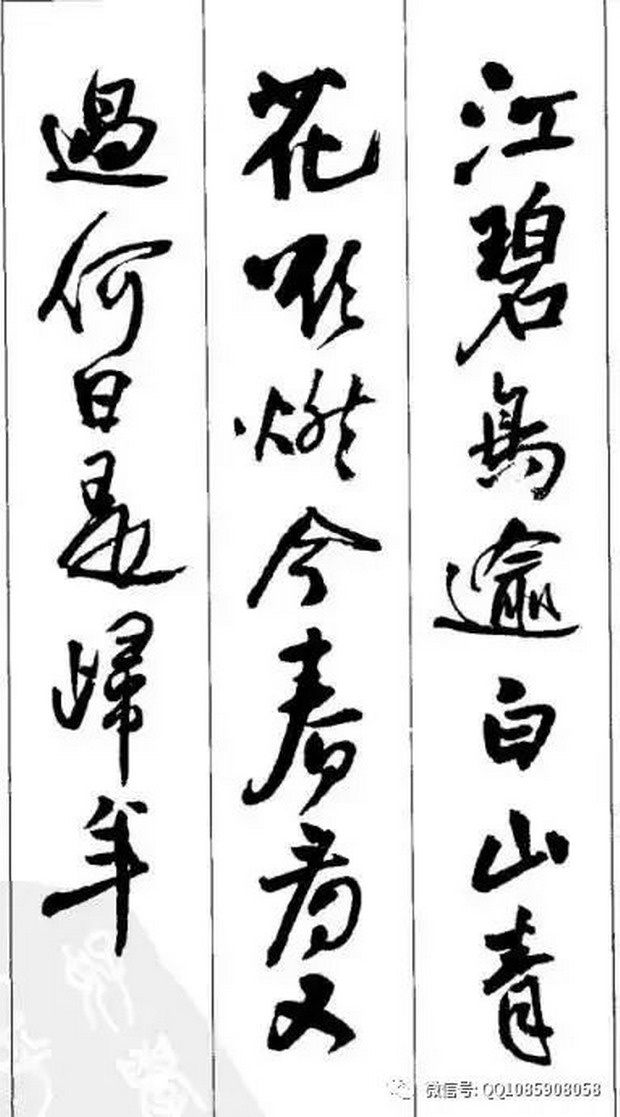 江碧鳥逾白山青
花欲燃今春看又
過何日是歸年
微信号: QQ1085908058